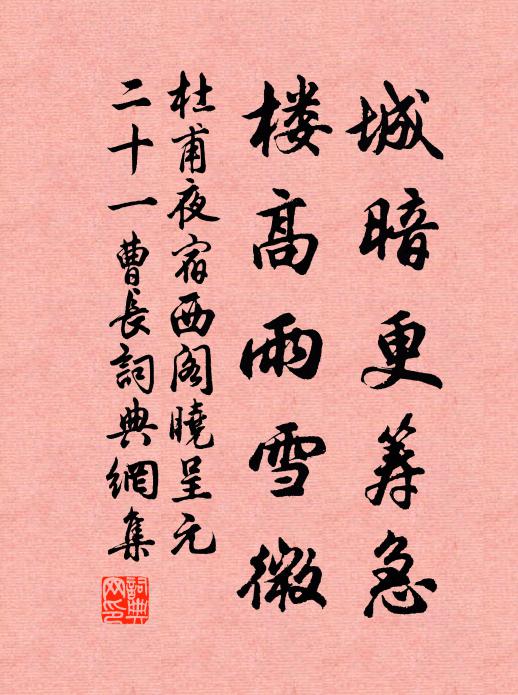 城暗更筹急
楼高雨雪微
杜甫夜宿西阁曉呈元
二十一曹长詞典網集
詞典網印